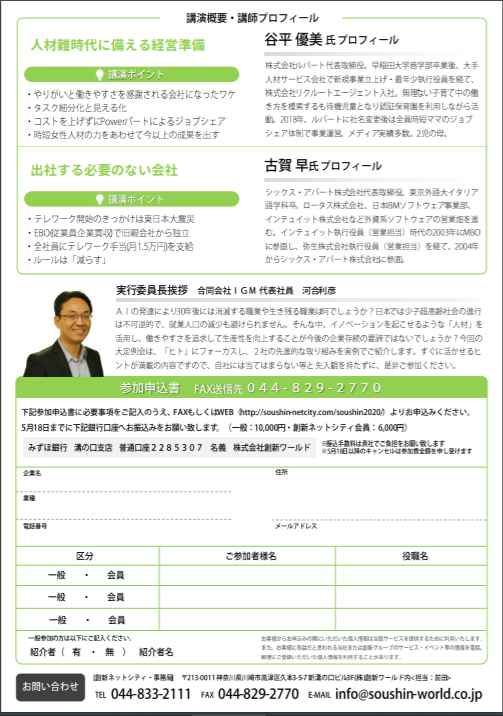 講演概要・講師プロフィール
人材難時代に備える経営準備
講演ポイント
・やりがいと働きやすさを感謝される会社になったワケ
・タスク細分化と見える化
・コストを上げずにPowerパートによるジョブシェア
・時短女性人材の力をあわせて今以上の成果を出す
谷平 優美 氏 プロフィール
株式会社ルバート代表取締役。早稲田大学商学部卒業後、大手
人材サービス会社で新規事業立上げ・最年少執行役員を経て、
株式会社リクルートエージェント入社。無理ない子育て中の働
き方を模索するも待機児童となり認証保育園を利用しながら活
動。2018年、ルバートに社名変更後は全員時短ママのジョブ
シェア体制で事業運営。メディア実績多数。2児の母。
出社する必要のない会社
講演ポイント
・テレワーク開始のきっかけは東日本大震災
・EBO(従業員企業買収)で旧親会社から独立
・全社員にテレワーク手当(月1.5万円)を支給
・ルールは「減らす」
古賀 早 氏 プロフィール
シックス・アパート株式会社代表取締役。東京外語大イタリア
語学科卒。ロータス株式会社、日本IBMソフトウェア事業部、
インテュイット株式会社など外資系ソフトウェアの営業畑を進
む。インテュイット執行役員（営業担当）時代の2003年にMBO
に参画し、弥生株式会社執行役員（営業担当）を経て、2004年
からシックス・アパート株式会社に参画。
実行委員長挨拶 合同会社ＩＧＭ 代表社員 河合利彦
ＡＩの発達により30年後には消滅する職業や生き残る職業は何でしょうか？日本では少子超高齢社会の進行
は不可逆的で、就業人口の減少も避けられません。そんな中、イノベーションを起こせるような「人材」を
活用し、働きやすさを追求して生産性を向上することが今後の企業存続の要諦ではないでしょうか？今回の
大定例会は、「ヒト」にフォーカスし、2社の先進的な取り組みを実例でご紹介します。すぐに活かせるヒ
ントが満載の内容ですので、自社には当てはまらない等と先入観を持たずに、是非ご参加ください。
参加申込書 FAX送信先 ０４４-８２９-２７７０
下記参加申込書に必要事項をご記入のうえ、FAXもしくはWEB（http://soushin-netcity.com/soushin2020/）よりお申込みください。
5月18日までに下記銀行口座へお振込みをお願い致します。（一般：10,000円・創新ネットシティ会員：6,000円）
みずほ銀行 溝の口支店 普通口座２２８５３０７ 名義 株式会社創新ワールド
※振込手数料は貴社でご負担をお願い致します
※5月18日以降のキャンセルは参加費全額を申し受けます
企業名 住所
業種
電話番号 メールアドレス
区分 ご参加者様名 役職名
一般 ・ 会員
一般 ・ 会員
一般 ・ 会員
一般参加の方は以下にご記入ください。
紹介者（ 有 ・ 無 ） 紹介者名
お客様からお申込みの際にいただいた個人情報は当該サービスを提供するために利用いたします。
また、お客様に有益だと思われる当社または創新グループのサービス・イベント等の情報を電話、
郵便にご登録いただいた個人情報を利用することがあります。
お問い合わせ
[創新ネットシティ・事務局] 〒213-0011 神奈川県川崎市高津区久本3-5-7 新溝の口ビル3F(株)創新ワールド内<担当：前田>
TEL 044-833-2111 FAX 044-829-2770 E-MAIL info@soushin-world.co.jp